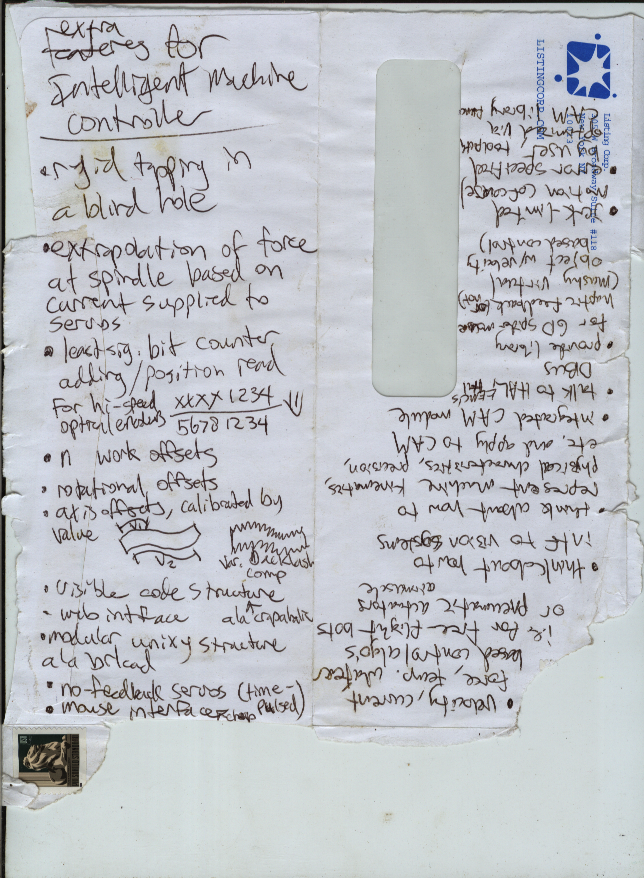 extra
features for
Intelligent Machine
controller
• rigid tapping in
a blind hole
• extrapolation of force
at spindle based on
current supplied to
servos
• least sig. bit counter
adding/position read
For hi-speed
optical encoders
xxxx 1234
5678 1234
• n work offsets
• rotational offsets
• axis offsets, calibrated by
value
V1
V2
var. Backlash
comp
• visible code structure
- web intface ala capabilic
• modular unixy structure
ala brlcad
• no-feedback servos (time-
pulsed)
• mouse interface
• velocity, current
force, temp. whatever
based control algo's
i.e. for free-flight bots
or pneumatic actuators
airmuscle
• think about how to
intf to vision systems
• think about how to
represent machine kinematics,
physical characteristics, precision,
etc. and apply to CAM
integrated CAM module
• talk to HAL, EMC's
DBus
• provide library
for 6D spider mouse
haptic feedback (or not)
(mushy virtual
object w/ velocity
based control)
• jerk-limited
motion (of course)
• or specified
by user
toolpath
via
CAM library
Listing Corp.
Suite #118
10013
LISTINGCORP.COM